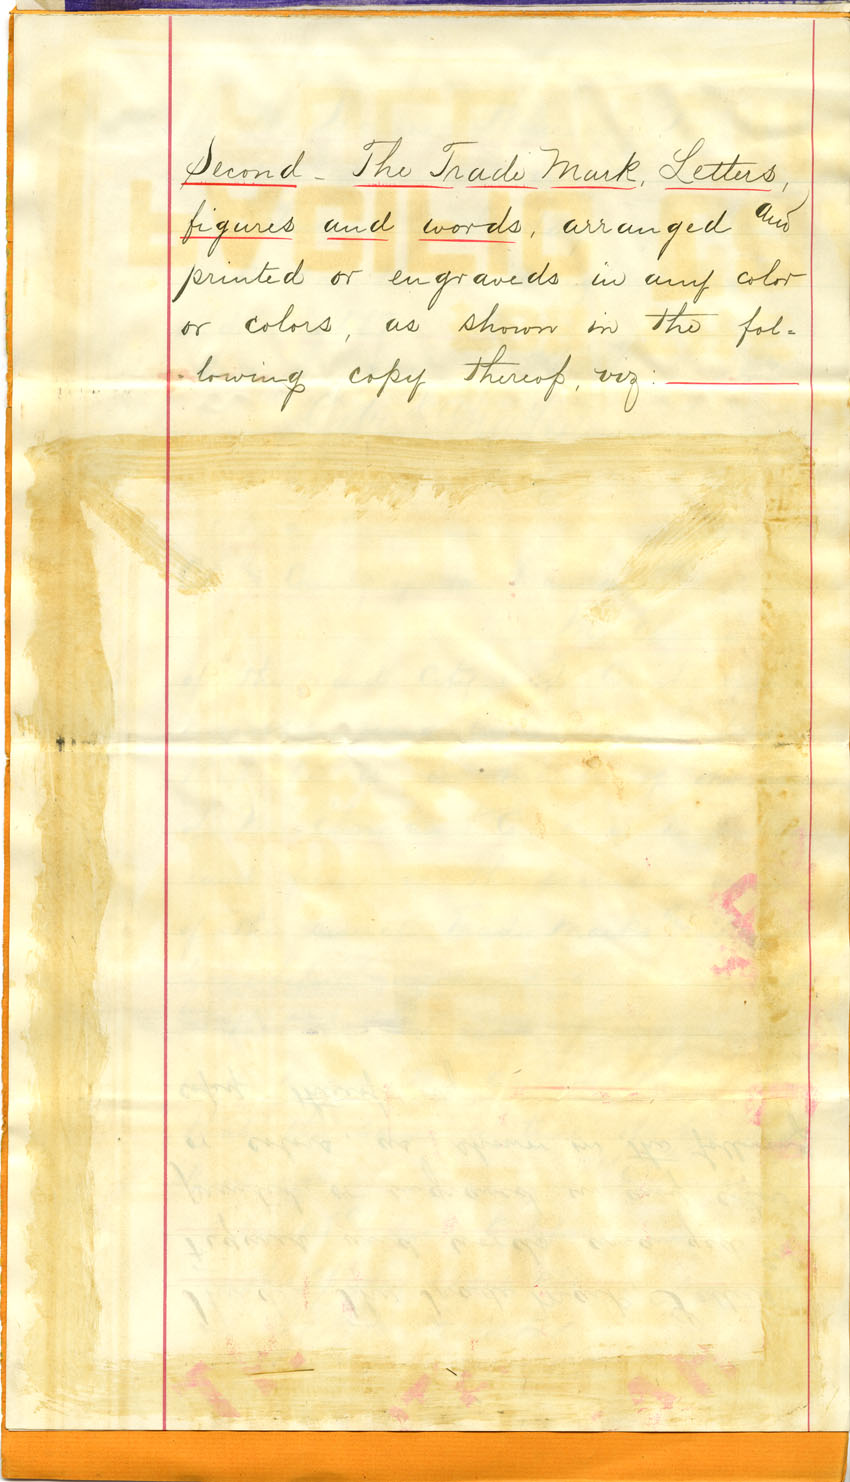 Second - The Trade Mark, Letters,
figures and words, arranged and
printed or engraveds in any color
or colors, as shown in the fol=
lowing copy thereof, viz: